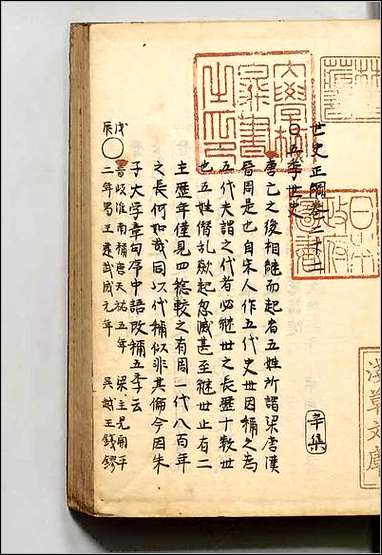 世史正綱卷二十二
○五季世史
辛集
唐亡之後相繼而起者五姓所謂梁唐漢
晉周是也自宋人作五代史世因稱之為
五代夫謂之代者必継世之長歷十數世
也五姓僭乱歘起忽滅甚至継世止有二
主歷年僅見四稔較之有周一代八百年
之長何如哉同以代稱似非其倫今因朱
子大學章句序中語改稱五季云
戊辰
○
晉岐淮南稱唐天祐五年
二年蜀王建武成元年
梁主晃開平
吳越王錢鏐
大學校
圖書
之印
淺草文庫
日本
政府
圖書